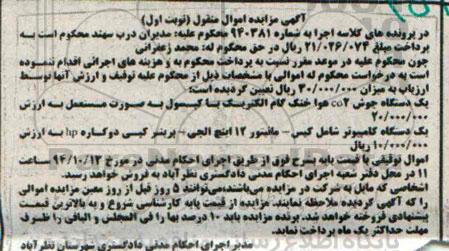 آگهی مزایده اموال منقول (نوبت اول)
در پرونده های کلاسه اجرا به شماره ۹۴۰۳۸۱ محکوم علیه: مدیران درب سهند محکوم است به
پرداخت مبلغ ۲۱/۰۲۶/۰۷۳ ریال در حق محکوم له: محمد زعفرانی
چون محکوم علیه در موعد مقرر نسبت به پرداخت محکوم به و هزینه های اجرائی اقدام ننموده
است به درخواست محکوم له اموالی با مشخصات ذیل از محکوم علیه توقیف و ارزش آنها توسط
ارزیاب به میزان ۳۰/۰۰۰/۰۰۰ ریال تعیین گردیده است:
یک دستگاه جوش co۲ هوا خنک گام الکتریک با کپسول به صورت مستعمل به ارزش
۲۰/۰۰۰/۰۰۰
یک دستگاه کامپیوتر شامل کیس - مانیتور ۱۲ اینچ الجی - پرینتر کپی دوکاره hp به ارزش
۱۰/۰۰۰/۰۰۰ ریال
اموال توقیفی با قیمت پایه بشرح فوق از طریق اجرای احکام مدنی در مورخ ۹۴/۱۰/۱۳ ساعت
۱۱ در محل دفتر شعبه اجرای احکام مدنی دادگستری نظرآباد به فروش خواهد رسید.
اشخاصی که مایل به شرکت در مزایده می‌باشند،می‌توانند ۵ روز قبل از روز معین مزایده اموالی
را که آگهی گردیده ملاحظه نمایند. مزایده از قیمت پایه کارشناسی شروع و به بالاترین قیمت
پیشنهادی فروخته خواهد شد. برنده مزایده باید ۱۰ درصد بها را فی المجلس و الباقی را ظرف
مهلت حداکثر یک ماه پرداخت نماید.
مدیر اجرای احکام مدنی دادگستری شهرستان نظرآباد